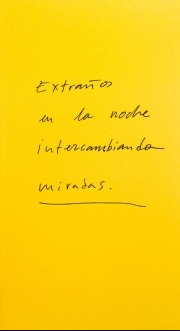 Extraños
en la noche
intercambiando
miradas.